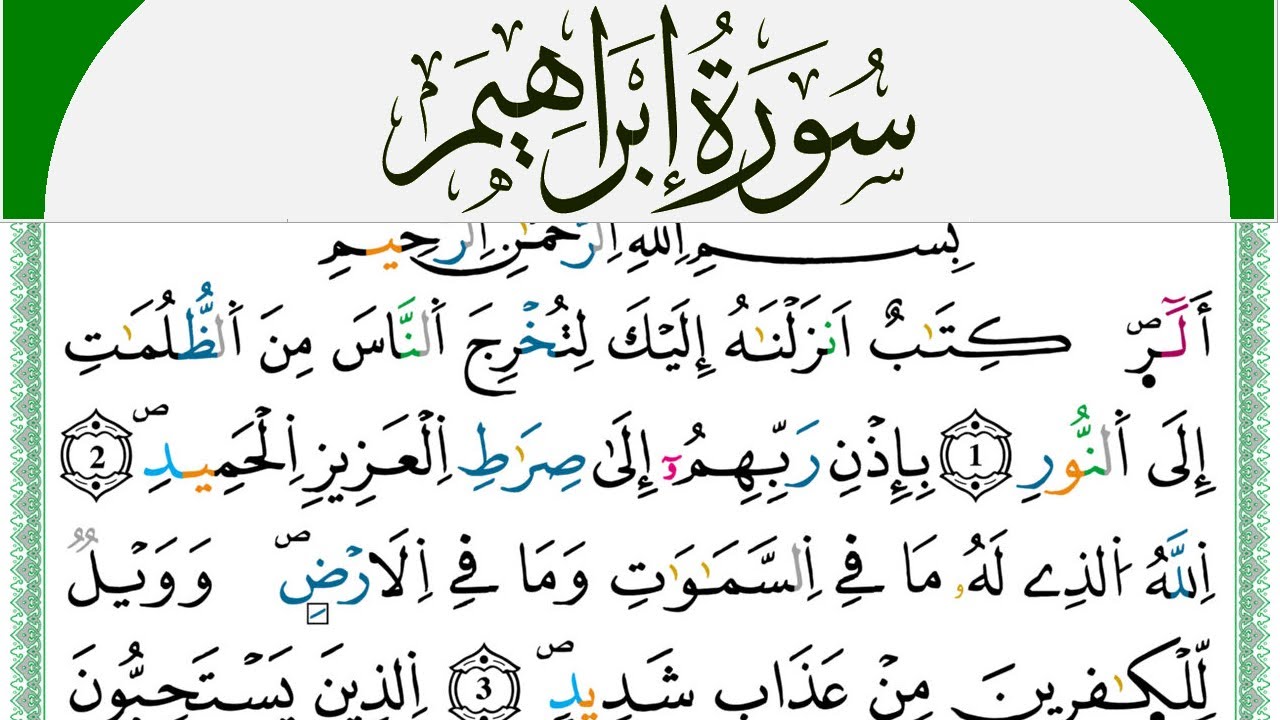 سُورَةُ إِبْرَاهِيمَ
بِسْمِ اِللَّهِ اِلرَّحْمَٰنِ اِلرَّحِيمِ
أَلَٓر۪ۖ كِتَٰبٌ اَنزَلْنَٰهُ إِلَيْكَ لِتُخْرِجَ اَلنَّاسَ مِنَ اَلظُّلُمَٰتِ
إِلَى اَلنُّورِ 1 بِإِذْنِ رَبِّهِمُۥٓ إِلَىٰ صِرَٰطِ اِلْعَزِيزِ اِلْحَمِيدِۖ 2
اِللَّهُ اُلذِے لَهُۥ مَا فِے اِلسَّمَٰوَٰتِ وَمَا فِے اِلَارْضِۖ وَوَيْلٞ
لِّلْكَٰفِرِينَ مِنْ عَذَابٖ شَدِيدٍۖ 3 اِلذِينَ يَسْتَحِبُّونَ